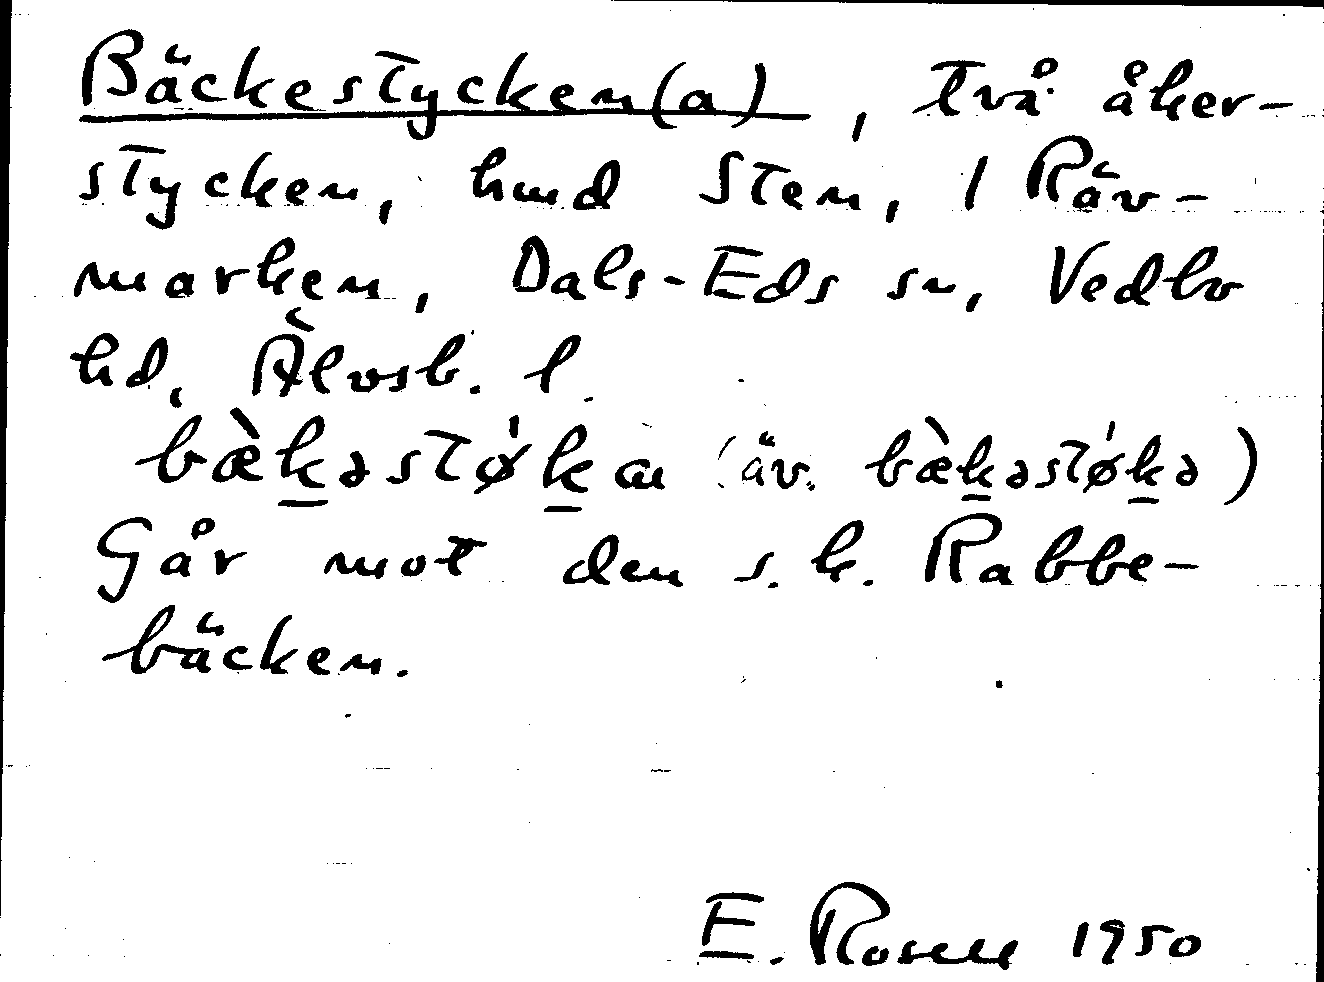 Bäckestycken(a), två åker-
stycken, hmd Sten, 1 Räv-
marken, Dals-Eds sn, Vedbo
hd, Älvsb. l.
bæ̀k̲əstø̍k̲a (äv. bæ̀k̲əstø̍k̲ə)
Går mot den s. k. Rabbe-
bäcken.
E. Rosell 1950